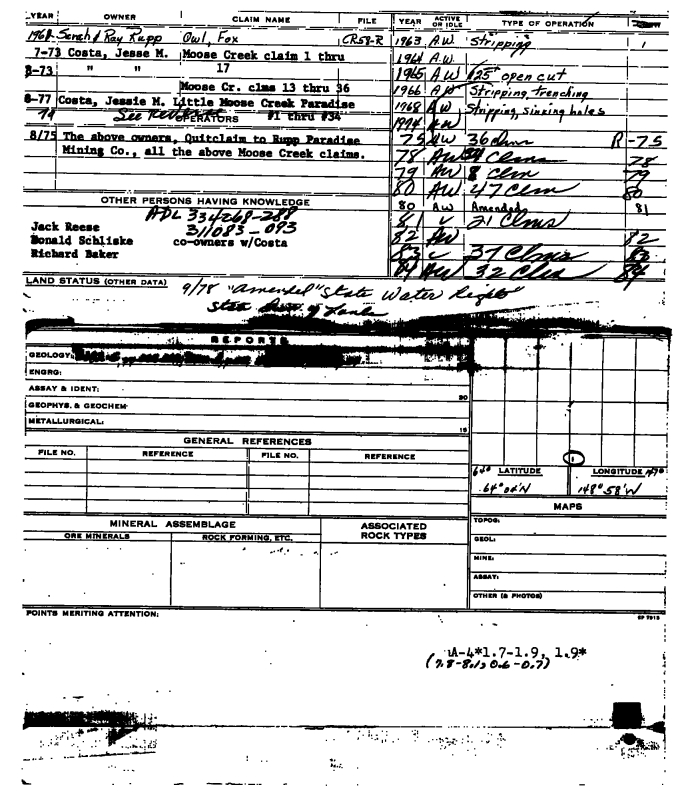 YEAR OWNER CLAIM NAME FILE
1968 Sarah & Ray Rupp Owl, Fox CR58-R
7-73 Costa, Jesse M. Moose Creek claim 1 thru
8-73 " " 17
Moose Cr. clms 13 thru 36
8-77 Costa, Jessie M. Little Moose Creek Paradise
74 See OPERATORS #1 thru #34
8/75 The above owners, Quitclaim to Rupp Paradise
Mining Co., all the above Moose Creek claims.
OTHER PERSONS HAVING KNOWLEDGE
ADL 334268-288
311083-093
Jack Reese
Donald Schliske co-owners w/Costa
Richard Baker
YEAR ACTIVE OR IDLE TYPE OF OPERATION
1963 A.W. Stripping 1
1964 A.W.
1965 A.W. 125' open cut
1966 A.W. Stripping, trenching
1968 A.W. Stripping, sinking holes
1974 AW
75 AW 36 clm R-75
78 AW Clms 78
79 AW 8 clm 79
80 AW 47 Clm 80
80 AW Amended 81
81 21 Clms
82 AW 82
83 37 Clms 83
84 AW 32 Clm 84
LAND STATUS (OTHER DATA) 9/78 "amended" State Water Rights"
REPORTS
GEOLOGY:
ENGRG:
ASSAY & IDENT:
GEOPHYS. & GEOCHEM:
METALLURGICAL:
GENERAL REFERENCES
FILE NO. REFERENCE FILE NO. REFERENCE
64° LATITUDE LONGITUDE 147°
64° 04'N 148° 58'W
MAPS
TOPOG:
GEOL:
MINE:
ASSAY:
OTHER (& PHOTOS)
MINERAL ASSEMBLAGE ASSOCIATED ROCK TYPES
ORE MINERALS ROCK FORMING, ETC.
POINTS MERITING ATTENTION:
A-4*1.7-1.9, 1.9*
(7.8-8.1, 0.6-0.7)